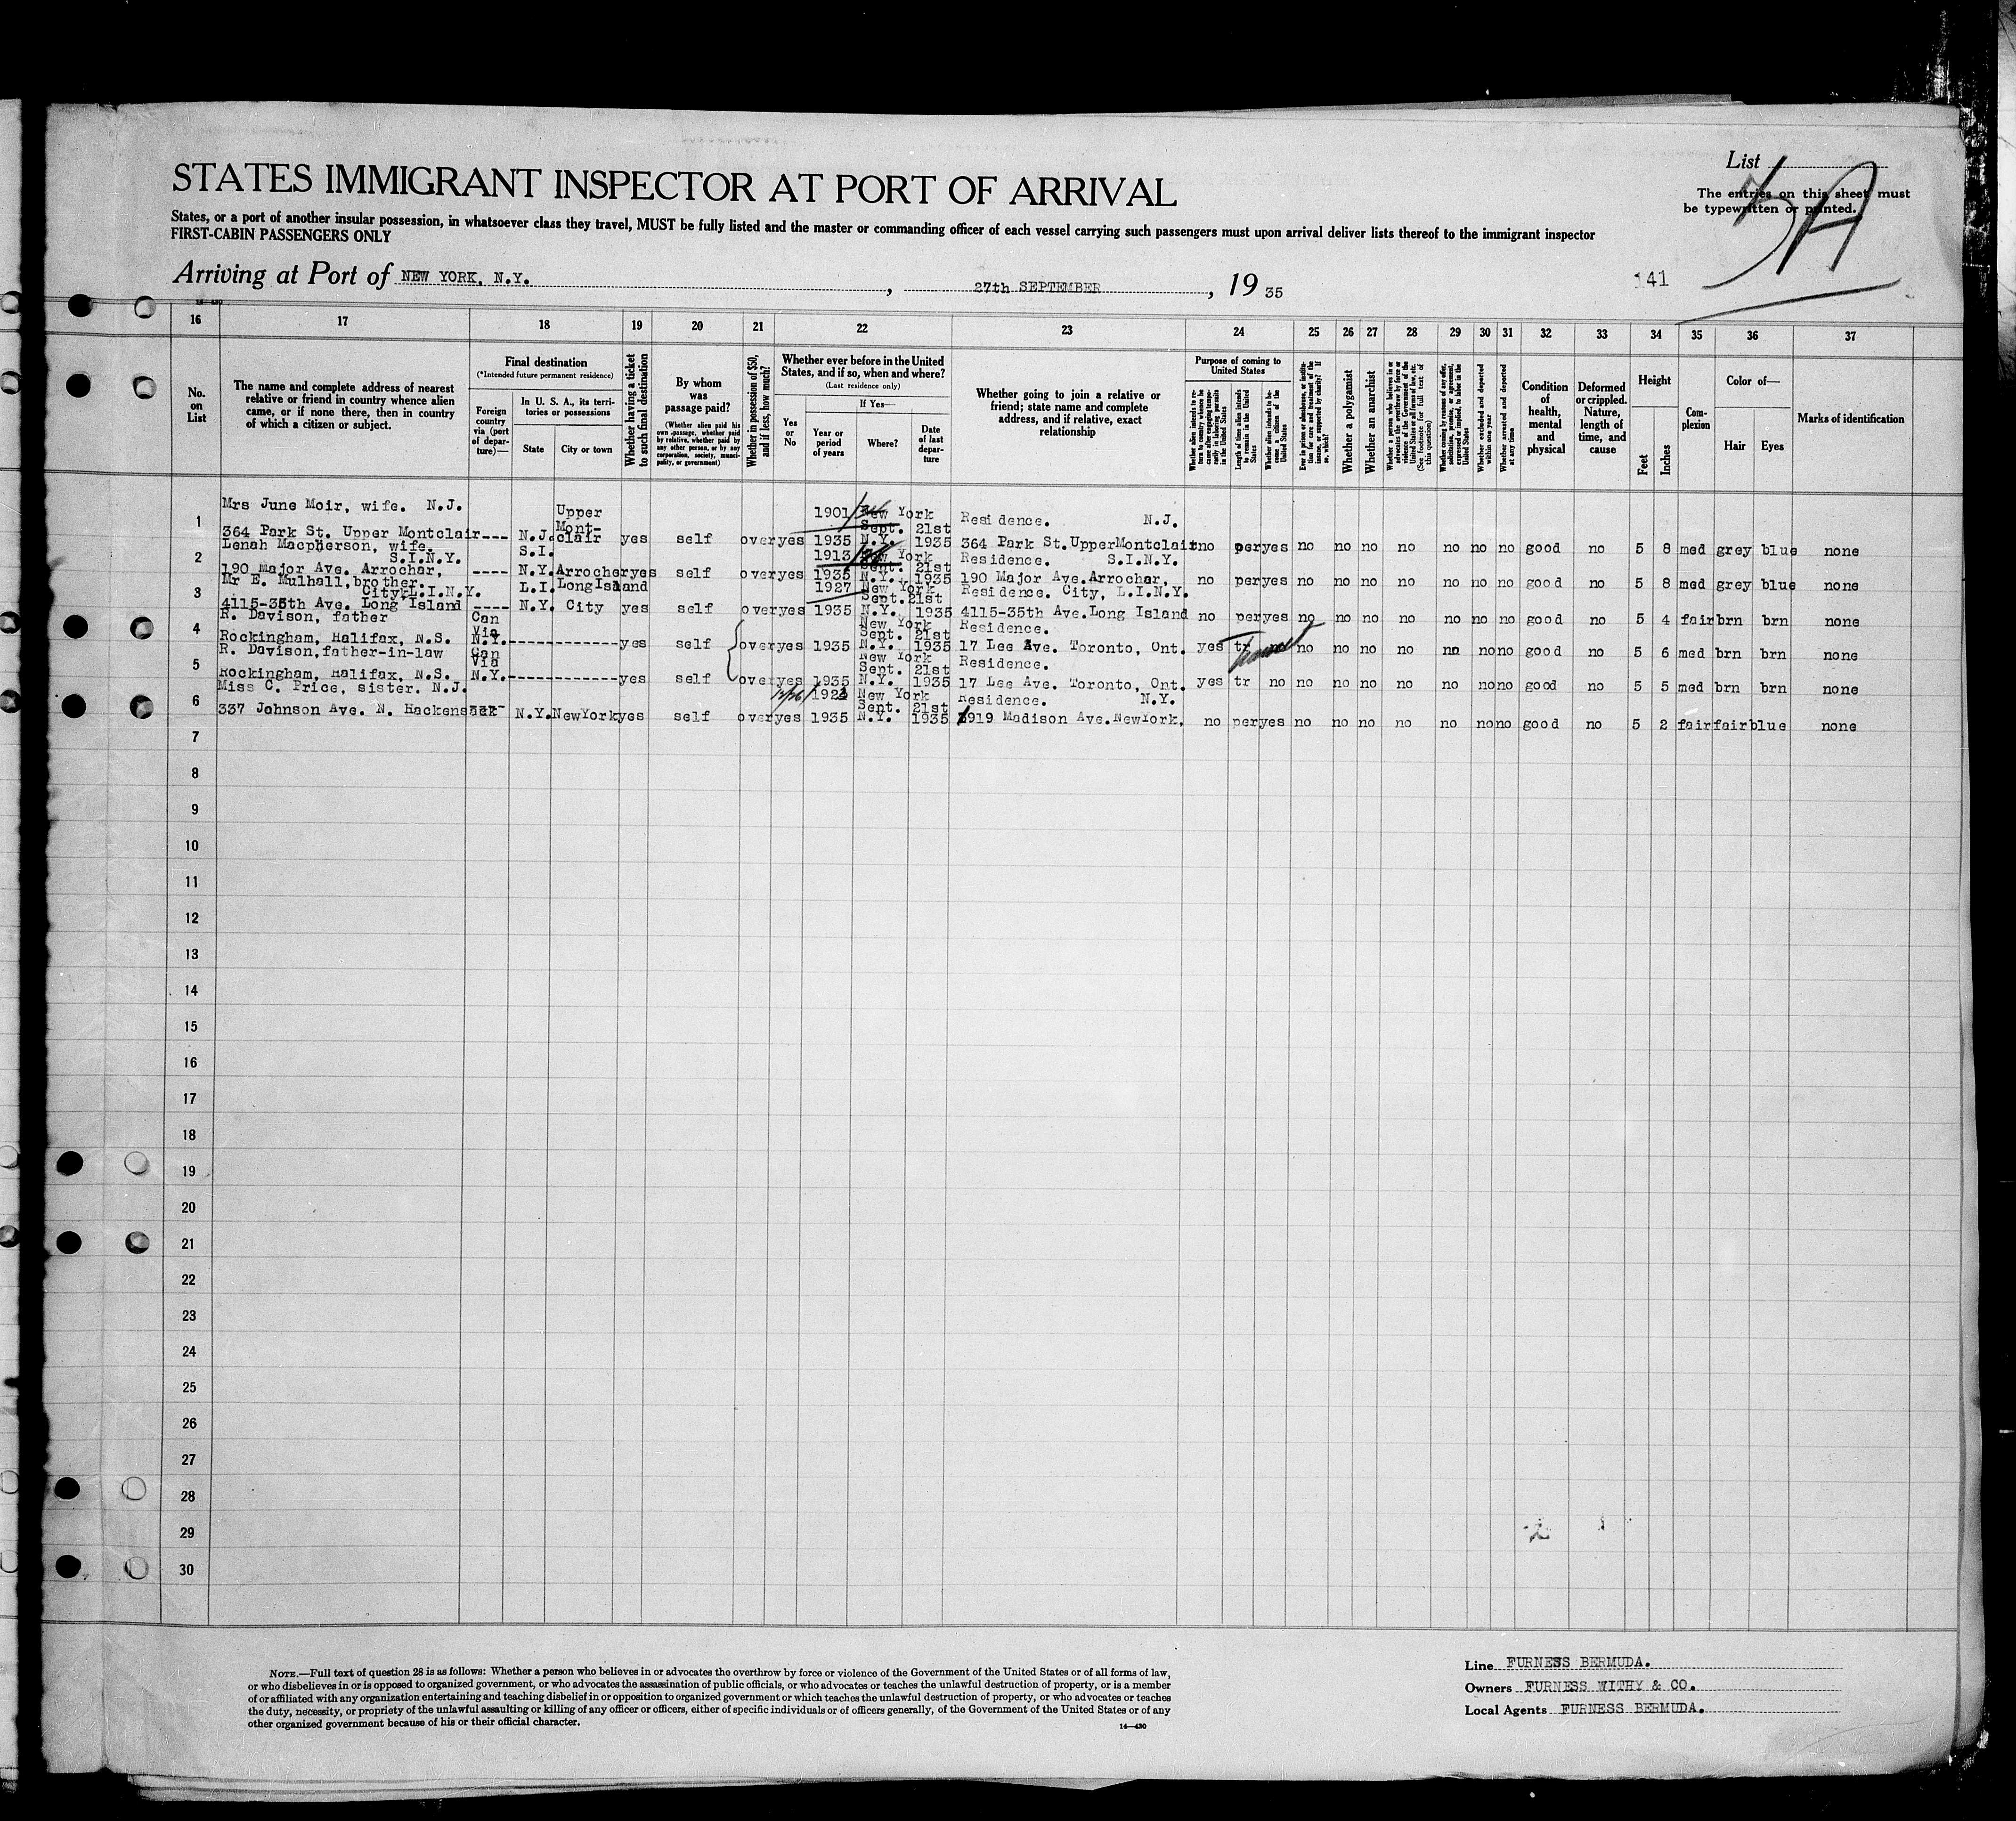 List
5A
The entries on this sheet must
be typewritten or printed.
STATES IMMIGRANT INSPECTOR AT PORT OF ARRIVAL
States, or a port of another insular possession, in whatsoever class they travel, MUST be fully listed and the master or commanding officer of each vessel carrying such passengers must upon arrival deliver lists thereof to the immigrant inspector
FIRST-CABIN PASSENGERS ONLY
Arriving at Port of NEW YORK, N.Y. , 27th SEPTEMBER , 19 35
141
16 17 18 19 20 21 22 23 24 25 26 27 28 29 30 31 32 33 34 35 36 37
No. on List
The name and complete address of nearest
relative or friend in country whence alien
came, or if none there, then in country
of which a citizen or subject.
Final destination
(*Intended future permanent residence)
Foreign country via (port of departure)—
In U. S. A., its territories or possessions
State
City or town
Whether having a ticket to such final destination
By whom was passage paid?
(Whether alien paid his own passage, whether paid by relative, whether paid by any other person, or by any corporation, society, municipality, or government)
Whether in possession of $50, and if less, how much?
Whether ever before in the United States, and if so, when and where?
(Last residence only)
Yes or No
If Yes—
Year or period of years
Where?
Date of last departure
Whether going to join a relative or
friend; state name and complete
address, and if relative, exact
relationship
Purpose of coming to United States
Whether alien intends to return to country whence he came after engaging temporarily in laboring pursuits in the United States
Length of time alien intends to remain in the United States
Whether alien intends to become a citizen of the United States
Ever in prison or almshouse, or institution for care and treatment of the insane, or supported by charity? If so, which?
Whether a polygamist
Whether an anarchist
Whether a person who believes in or advocates the overthrow by force or violence of the Government of the United States or all forms of law, etc. (See footnote for full text of this question)
Whether coming by reason of any offer, solicitation, promise, or agreement, expressed or implied, to labor in the United States
Whether excluded and deported within one year
Whether arrested and deported at any time
Condition of health, mental and physical
Deformed or crippled. Nature, length of time, and cause
Height
Feet
Inches
Complexion
Color of—
Hair
Eyes
Marks of identification
1 Mrs June Moir, wife. N.J. Upper Mont- 1901 New York Sept. 21st Residence. N.J.
364 Park St. Upper Montclair--- N.J. clair yes self over yes 1935 N.Y. 1935 364 Park St.UpperMontclair no per yes no no no no no no no good no 5 8 med grey blue none
2 Lenah Macpherson, wife. S.I.N.Y. S.I. 1913 New York Sept. 21st Residence. S.I.N.Y.
190 Major Ave. Arrochar, ---- N.Y. Arrocher yes self over yes 1935 N.Y. 1935 190 Major Ave.Arrochar, no per yes no no no no no no no good no 5 8 med grey blue none
3 Mr E. Mulhall,brother. City,L.I.N.Y. L.I. LongIsland 1927 New York Sept.21st Residence. City, L.I.N.Y.
4115-35th Ave. Long Island ---- N.Y. City yes self over yes 1935 N.Y. 1935 4115-35th Ave.Long Island no per yes no no no no no no no good no 5 4 fair brn brn none
4 R. Davison, father Can Via New York Sept. 21st Residence.
Rockingham, Halifax, N.S. N.Y.------------- yes self over yes 1935 N.Y. 1935 17 Lee Ave. Toronto, Ont. yes tr no no no no no no no good no 5 6 med brn brn none
5 R. Davison,father-in-law Can Via New York Sept. 21st Residence.
Rockingham, Halifax, N.S. N.Y.------------- yes self over yes 1935 N.Y. 1935 17 Lee Ave. Toronto, Ont. yes tr no no no no no no no no good no 5 5 med brn brn none
6 Miss C. Price, sister. N.J. New York Sept. 21st Residence. N.Y.
337 Johnson Ave. N. Hackensack N.Y. NewYork yes self over yes 1935 N.Y. 1935 1919 Madison Ave.NewYork, no per yes no no no no no no no good no 5 2 fair fair blue none
7
8
9
10
11
12
13
14
15
16
17
18
19
20
21
22
23
24
25
26
27
28
29
30
NOTE.—Full text of question 28 is as follows: Whether a person who believes in or advocates the overthrow by force or violence of the Government of the United States or of all forms of law,
or who disbelieves in or is opposed to organized government, or who advocates the assassination of public officials, or who advocates or teaches the unlawful destruction of property, or is a member
of or affiliated with any organization entertaining and teaching disbelief in or opposition to organized government or which teaches the unlawful destruction of property, or who advocates or teaches
the duty, necessity, or propriety of the unlawful assaulting or killing of any officer or officers, either of specific individuals or of officers generally, of the Government of the United States or of any
other organized government because of his or their official character.
14—430
Line FURNESS BERMUDA.
Owners FURNESS WITHY & CO.
Local Agents FURNESS BERMUDA.